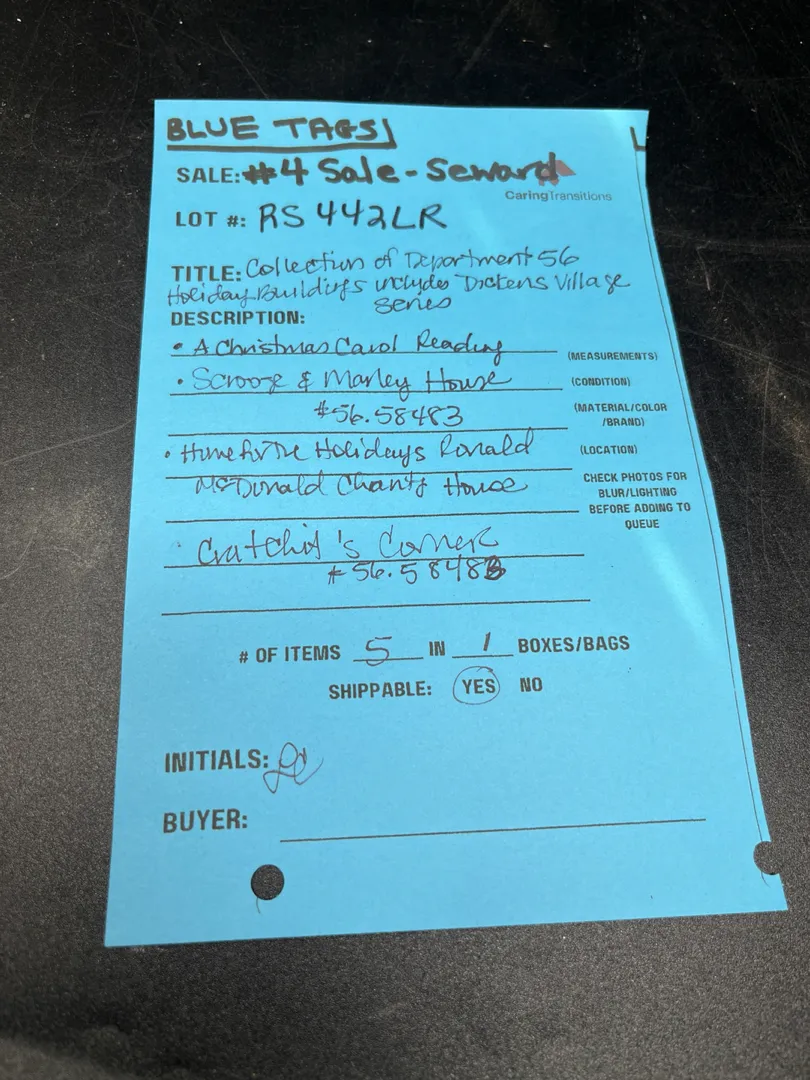 BLUE TAGS
L
SALE: #4 Sale - Seward
CaringTransitions
LOT #: RS 442LR
TITLE: Collection of Department 56
Holiday Buildings includes Dickens Village
Series
DESCRIPTION:
• A Christmas Carol Reading
(MEASUREMENTS)
• Scrooge & Marley House
(CONDITION)
#56.58483
(MATERIAL/COLOR
/BRAND)
• Home for the Holidays Ronald
(LOCATION)
McDonald Charity House
CHECK PHOTOS FOR
BLUR/LIGHTING
BEFORE ADDING TO
QUEUE
• Cratchit's Corner
#56.58483
# OF ITEMS 5 IN 1 BOXES/BAGS
SHIPPABLE: YES NO
INITIALS:
BUYER: